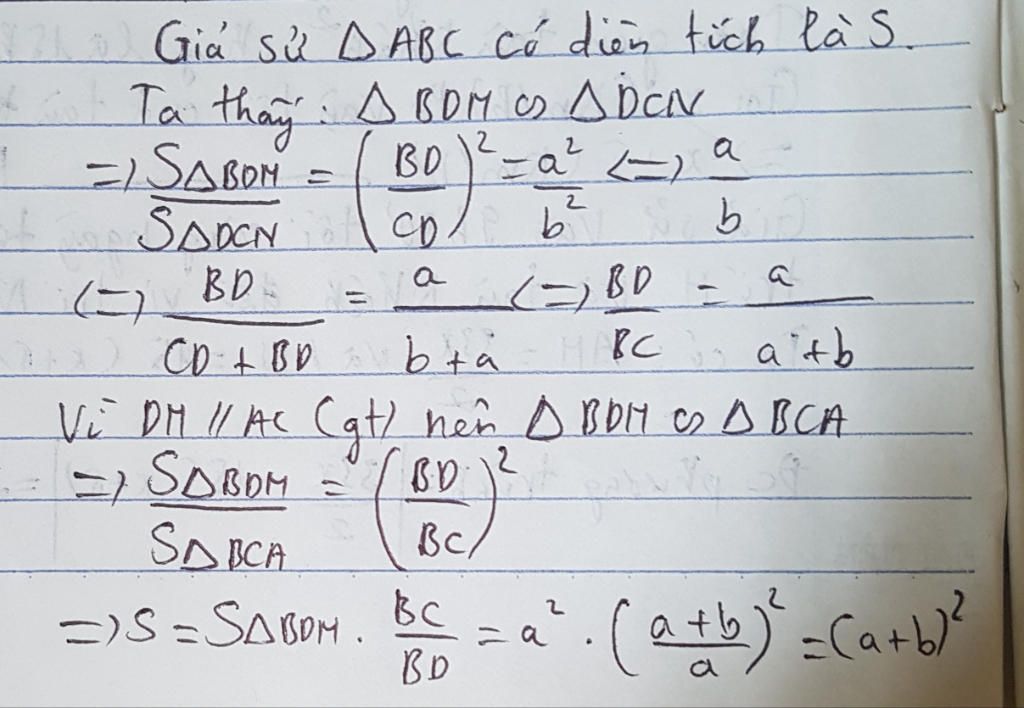 Giả sử ΔABC có diện tích là S.
Ta thấy: ΔBDM ∽ ΔDCN
=> SΔBDM / SΔDCN = (BD / CD)² = a² / b² <=> a / b
<=> BD / CD + BD = a / b + a <=> BD / BC = a / a + b
Vì DM // AC (gt) nên ΔBDM ∽ ΔBCA
=> SΔBDM / SΔBCA = (BD / BC)²
=> S = SΔBDM . BC / BD = a² . (a + b / a)² = (a + b)²